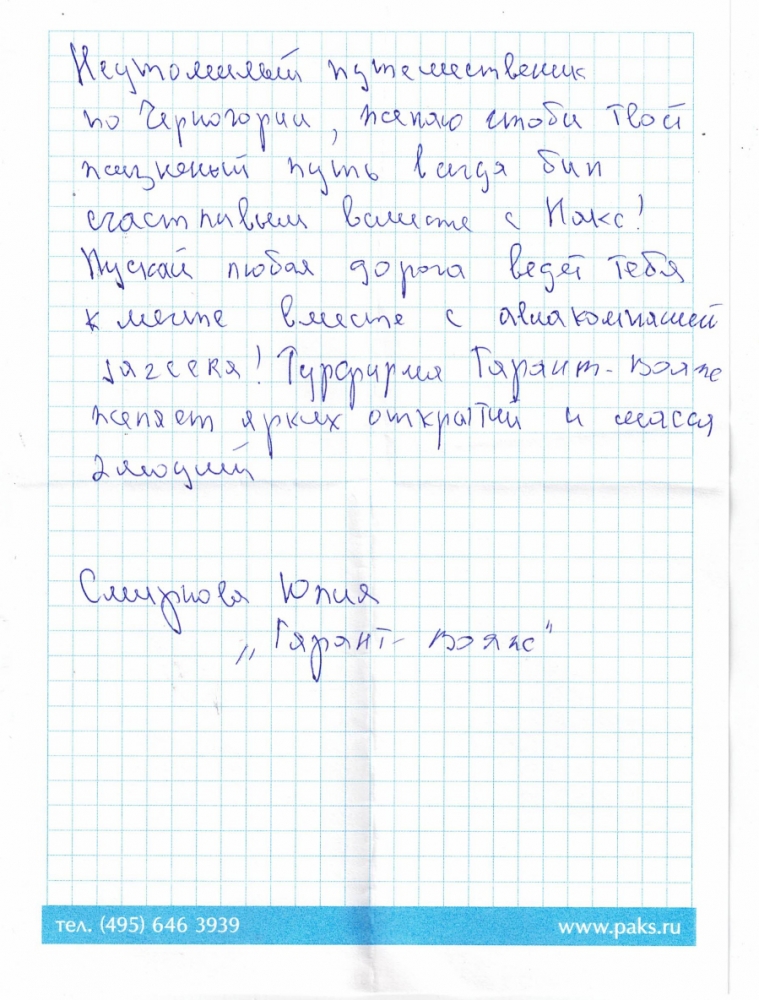 Неутомимый путешественик
по Черногории, желаю чтобы твой
жизненый путь всегда был
счастливым вместе с Пакс!
Пускай любая дорога ведет тебя
к мечте вместе с авиакомпанией
jатееvа! Турфирма Гарант-Вояж
желает ярких открытий и масса
эмоций
Смирнова Юлия
„Гарант-Вояж"
тел. (495) 646 3939
www.paks.ru